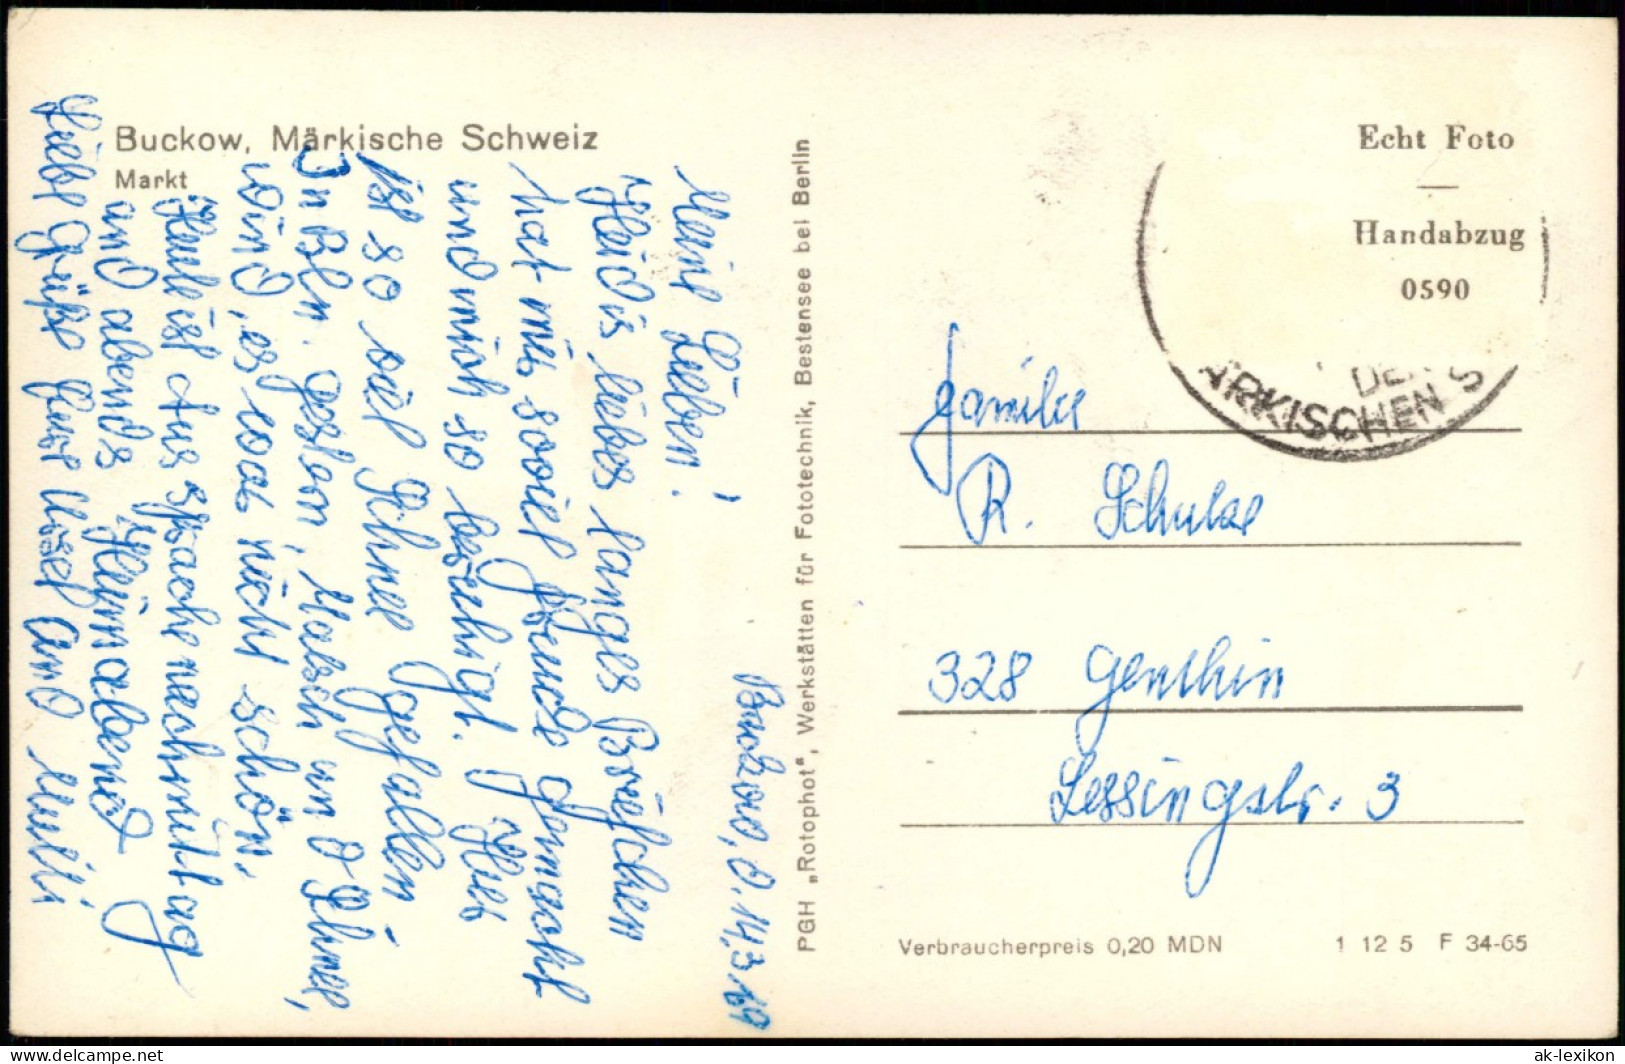 Buckow, Märkische Schweiz
Markt
Buckow, d. 14.3.69
Meine Lieben!
Heidis liebes langes Briefchen
hat mir soviel Freude gemacht
und mich so beruhigt. Hier
ist so viel Schnee gefallen
In Bln. gestern, Matsch und Schnee,
Wind, es war nicht schön.
Heute ist Aussprachenachmittag
und abends Heimabend
Liebe Grüße Eure Ursel und Mutti
PGH „Rotophot", Werkstätten für Fototechnik, Bestensee bei Berlin
Echt Foto
—
Handabzug
0590
DER
ÄRKISCHEN S
Familie
R. Schulze
328 Genthin
Lessingstr. 3
Verbraucherpreis 0,20 MDN
1 12 5 F 34-65
ak-lexikon
www.delcampe.net the-collector